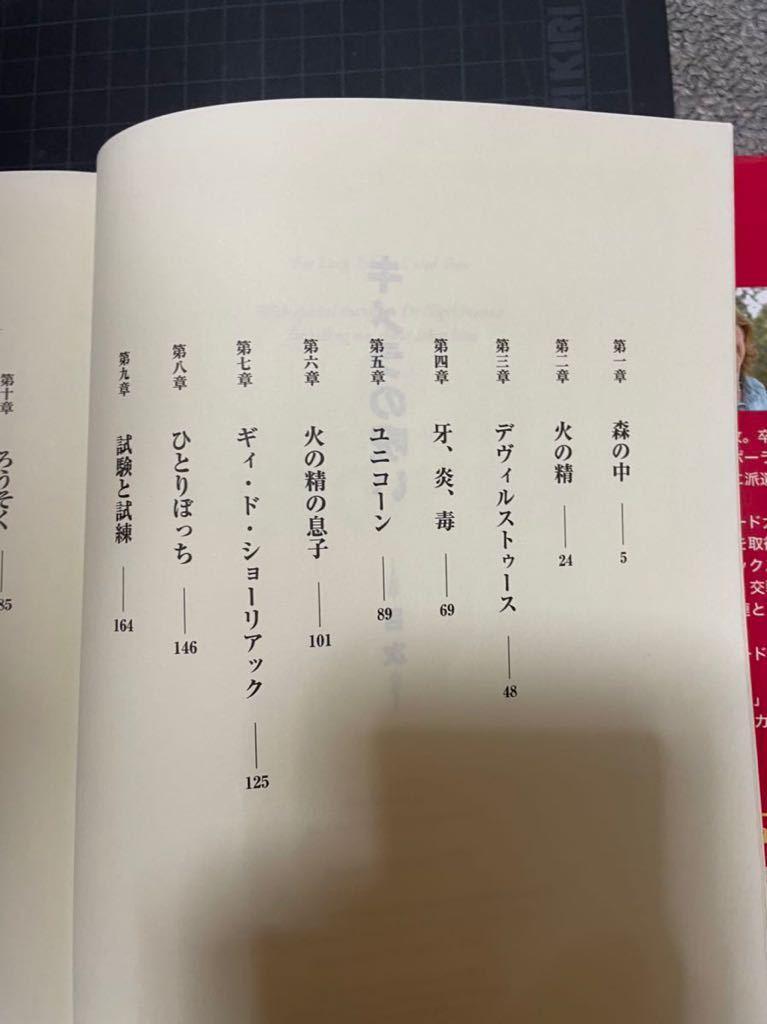 第一章 森の中 5
第二章 火の精 24
第三章 デヴィルストゥース 48
第四章 牙、炎、毒 69
第五章 ユニコーン 89
第六章 火の精の息子 101
第七章 ギィ・ド・ショーリアック 125
第八章 ひとりぼっち 146
第九章 試験と試練 164
第十章 ろうそく